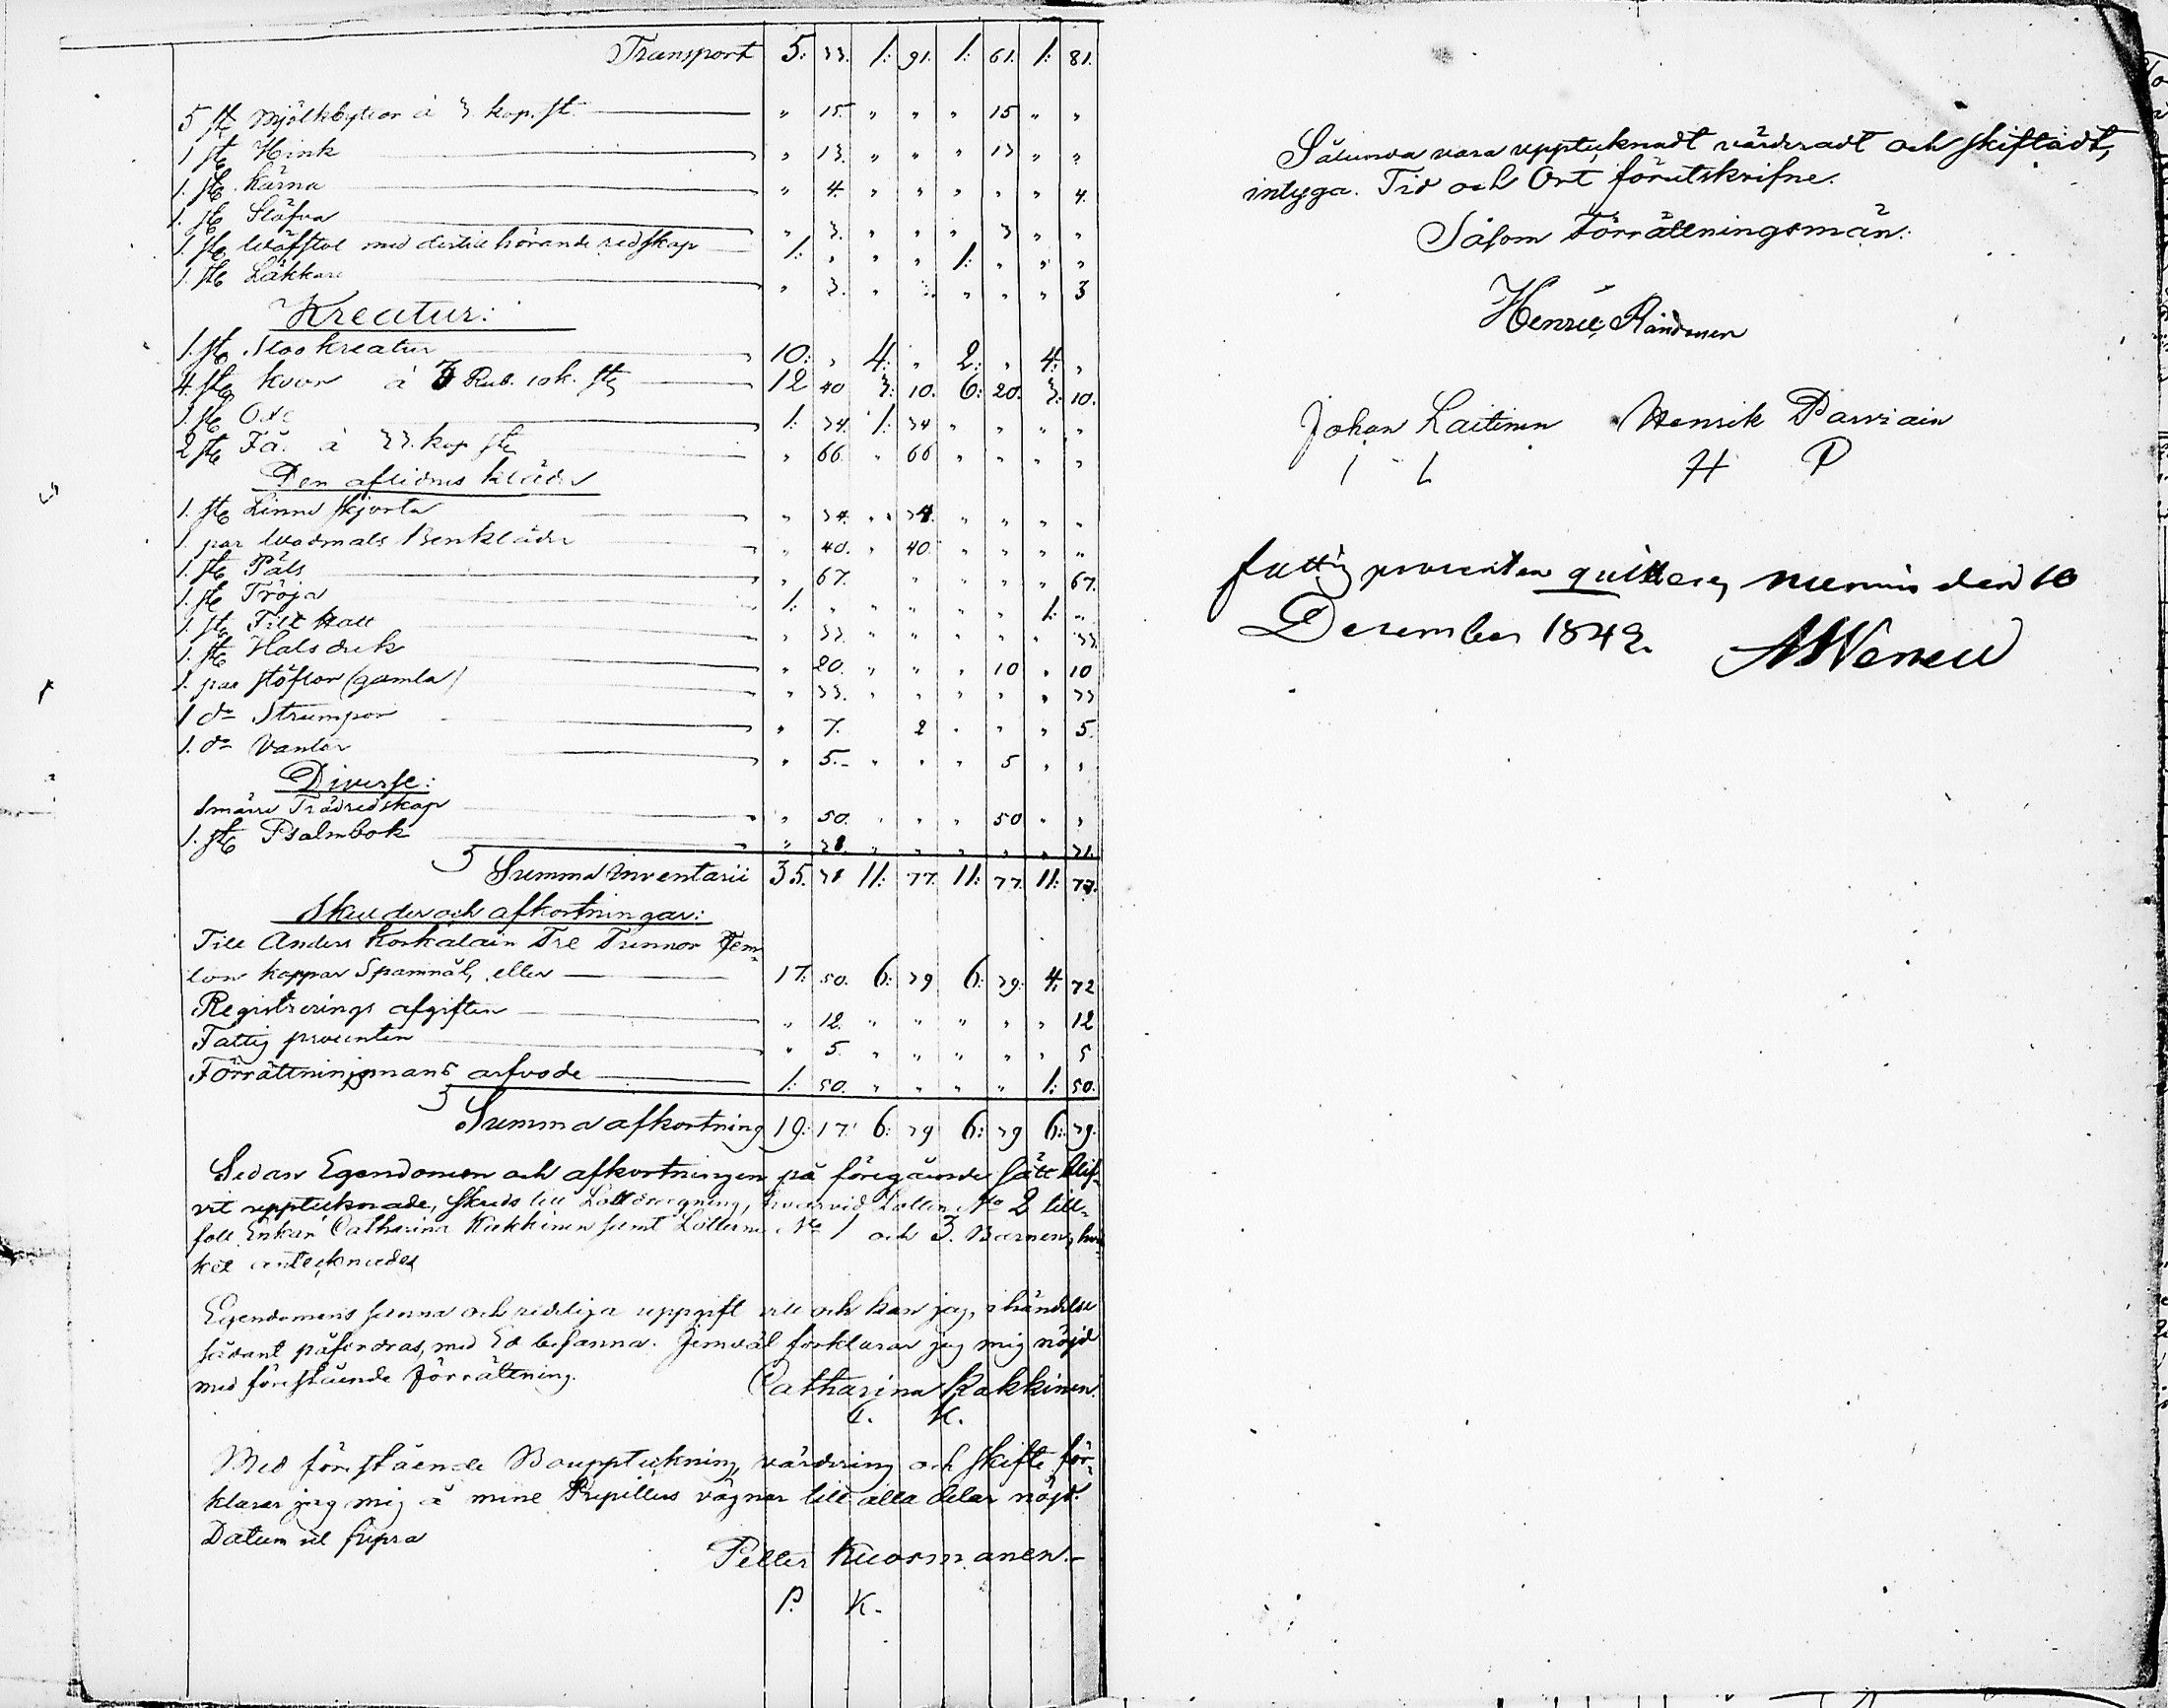 Transport 5: 33. 1: 91. 1: 61. 1: 81.
5 st Mjölkbyttor á 3 kop. st. " 15. " " " 15 " "
1 st Hink " 13. " " " 13 " "
1. st. Kärna " 4. " " " " " 4.
1. st Släfva " 3. " " " 3 " "
1. st Wäfstol med dertill hörande redskap 1: " " " 1: " " "
1. st Läkkare " 3. " " " " " 3
Kreatur:
1. st Stookreatur 10: " 4: " 2: " 4: "
4. st koor á 3 Rub. 10 k. st 12 40 3: 10. 6: 20. 3: 10.
1 st Oxe 1: 34. 1: 34 " " " "
2 st Få. á 33. kop st " 66. " 66 " " " "
Den aflidnes kläder
1. st Linne skjorta " 34. " 34. " " " "
1. par Wadmals Benkläder " 40. " 40 " " " "
1. st Päls " 67. " " " " " 67.
1. st Tröja 1: " " " " " 1: "
1 st Filt Hatt " 33. " " " " " 33.
1. st Halsduk " 20. " " " 10 " 10
1. par stöflor (gamla) " 33. " " " " " 33
1 do Strumpor " 7. 2 " " " 5.
1. do Vantar " 5. " " " 5 " "
Diverse:
Smärre Trädredskap " 50. " " " 50 " "
1. st Psalmbok " 31. " " " " " 31.
Summa Inventarii 35. 31 11: 77. 11: 77. 11: 77.
Skulder och afkortningar:
Till Anders Korkalain Tre Tunnor Fem-
ton kappar Spannål, eller 17: 50. 6: 39 6: 39. 4: 72
Registrerings afgiften " 12. " " " " " 12
Fattig procenten " 5. " " " " " 5
Förrättningsmans arfvode 1: 50. " " " " 1: 50.
Summa afkortning 19: 17. 6: 39 6: 39 6: 39.
Sedan Egendomen och afkortningen på föregående sätt blif-
vit upptecknade, skreds till Lottdragning, hvarvid Lotten No 2 till-
föll Enkan Catharina Kukkinen samt Lotterne No 1 och 3. Barnen, hvil-
ket antecknades
Egendomens sanna och redeliga uppgift vill och kan jag, i händelse
sådant påfordras, med Ed besanna. Jemväl förklarar jag mig nöjd
med förestående förrättning.
Catharina Kakkinen.
C. K.
Med förestående Bouppteckning, värdering och skifte för-
klarar jag mig å mine Pupillers vägnar till alla delar nöjd.
Datum ut supra
Petter Kuosmanen.-
P. K.
Sålunda vara upptecknadt värderadt och skiftadt,
intyga. Tid och Ort förutskrifne.
Såsom Förrättningsmän:
Henric Rändonen
Johan Laitinen Henrik Parviain
I L H P
fattig procenten quitteras, den 10
December 1842.